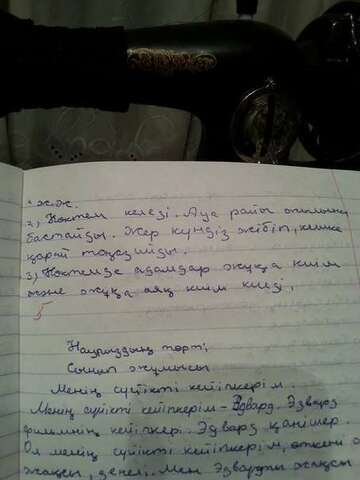 ж.ж.
2) Көктем келеді. Ауа райы
бастайды. Жер күндіз жібіп, кешке
қарай тоңазийды.
3) Көктемде адамдар жұқа киім
және жұқа аяқ киім киеді.
5
Наурыздың төрті
Сынып жұмысы
Менің сүйікті кейіпкерім.
Менің сүйікті кейіпкерім - Эдвард. Эдвард
фильмнің кейіпкері. Эдвард қанішер.
Ол менің сүйікті кейіпкерім, өткені о
жақсы, денелі. Мен Эдвардты жақсы